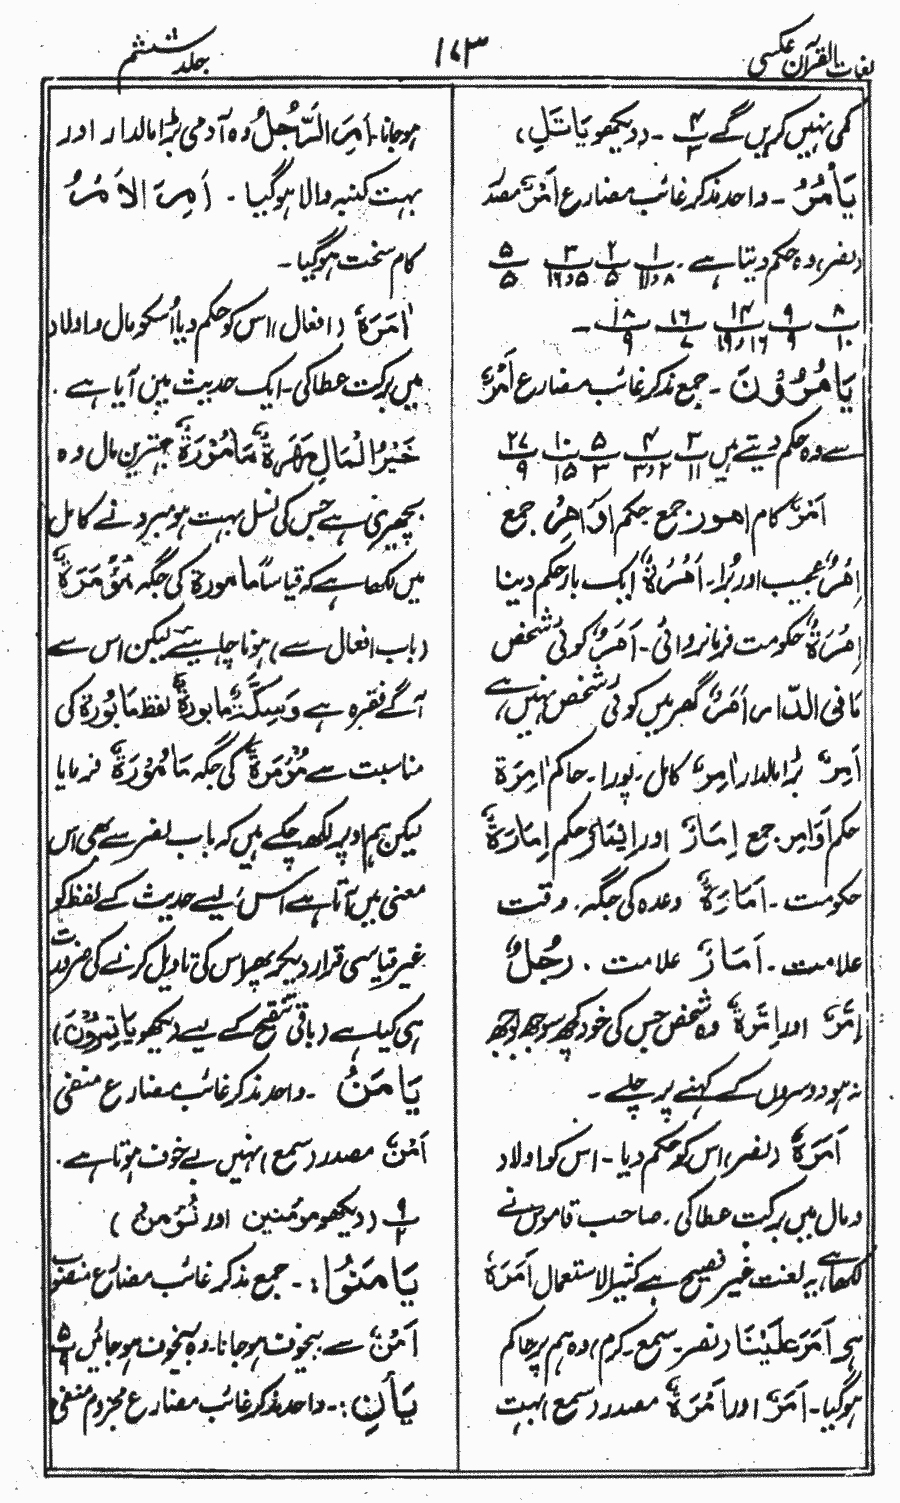 لغات القرآن عکسی
۱۷۳
جلد ششم
کمی نہیں کریں گے ۴/۳ - (دیکھو یَاتَلِ)
یَأْمُرُ - واحد مذکر غائب مضارع اَمْرٌ مصدر
(نصر) وہ حکم دیتا ہے - ۱/۸ و ۱۱ ۲/۵ ۳/۵ و ۱۶ ۵/۵
۸/۱۰ ۹/۹ ۱۴/۱۶ و ۱۹ ۱۶/۷ ۱۸/۹ -
یَامُرُوْنَ - جمع مذکر غائب مضارع اَمْرٌ
سے وہ حکم دیتے ہیں ۳/۱۱ ۴/۲ و ۳ ۵/۳ ۱۰/۱۵ ۲۷/۹
اَمْرٌ کام اُمور جمع حکم اَوَامِرُ جمع
اِمْرٌ عجیب اور بُرا - اَمْرَةٌ ایک بار حکم دینا
اِمْرَةٌ حکومت فرمانروائی - اَمَرٌ کوئی شخص
مَا فِی الدَّار اَمَرٌ گھر میں کوئی شخص نہیں ہے،
اَمِرٌ بڑا مالدار اَمِرٌ کامل - پورا - حاکم اِمِرَة
حکم اَوَامِر جمع اِمَارٌ اور اِیْتِمَارٌ حکم اِمَارَةٌ
حکومت - اَمَارَةٌ وعدہ کی جگہ، وقت
علامت - اَمَارٌ علامت . رَجُلٌ
اِمَّرٌ اور اِمَّرَةٌ وہ شخص جس کی خود کچھ سوجھ بوجھ
نہ ہو دوسروں کے کہنے پر چلے -
اَمَرَهٗ (نصر) اس کو حکم دیا - اس کو اولاد
و مال میں برکت عطا کی . صاحب قاموس نے
لکھا ہے، یہ لغت غیر فصیح ہے کثیر الاستعمال اٰمَرَهٗ
ہے اَمَرَ عَلَیْنَا (نصر - سمع - کرم) وہ ہم پر حاکم
ہو گیا - اَمَرٌ اور اَمْرَةٌ مصدر (سمع) بہت
ہو جانا - اَمِرَ الرَّجُلُ وہ آدمی بڑا مالدار اور
بہت کنبہ والا ہو گیا . اَمِرَ الْاَمْرُ
کام سخت ہو گیا -
اٰمَرَهٗ (افعال) اس کو حکم دیا اُسکو مال و اولاد
میں برکت عطا کی - ایک حدیث میں آیا ہے .
خَیْرُ الْمَالِ مُهْرَةٌ مَأْمُوْرَةٌ بہترین مال وہ
بچھیری ہے جس کی نسل بہت ہو مبرد نے کامل
میں لکھا ہے کہ قیاسًا مامورة کی جگہ مُؤْمَرَةٌ
(باب افعال سے) ہونا چاہیئے لیکن اس سے
آگے فقرہ ہے وَسِکَّةٌ مابورةٌ لفظ مَابُوْرَة کی
مناسبت سے مُؤْمَرَةٌ کی جگہ مَامُوْرَةٌ فرمایا
لیکن ہم اوپر لکھ چکے ہیں کہ باب نصر سے بھی اس
معنی میں آتا ہے اس لیے حدیث کے لفظ کو
غیر قیاسی قرار دیکر پھر اس کی تاویل کرنے کی ضرورت
ہی کیا ہے (باقی تنقیح کے لیے دیکھو یَاتَمِرُوْنَ)
یَامَنُ - واحد مذکر غائب مضارع منفی
اَمْنٌ مصدر (سمع) نہیں بے خوف ہوتا ہے .
۹/۲ (دیکھو مومنین اور نُؤْمِنُ)
یَامَنُوْا : - جمع مذکر غائب مضارع منصوب
اَمْنٌ سے بیخوف ہو جانا - وہ بیخوف ہو جائیں ۵/۹
یَأْنِ : - واحد مذکر غائب مضارع مجزوم منفی